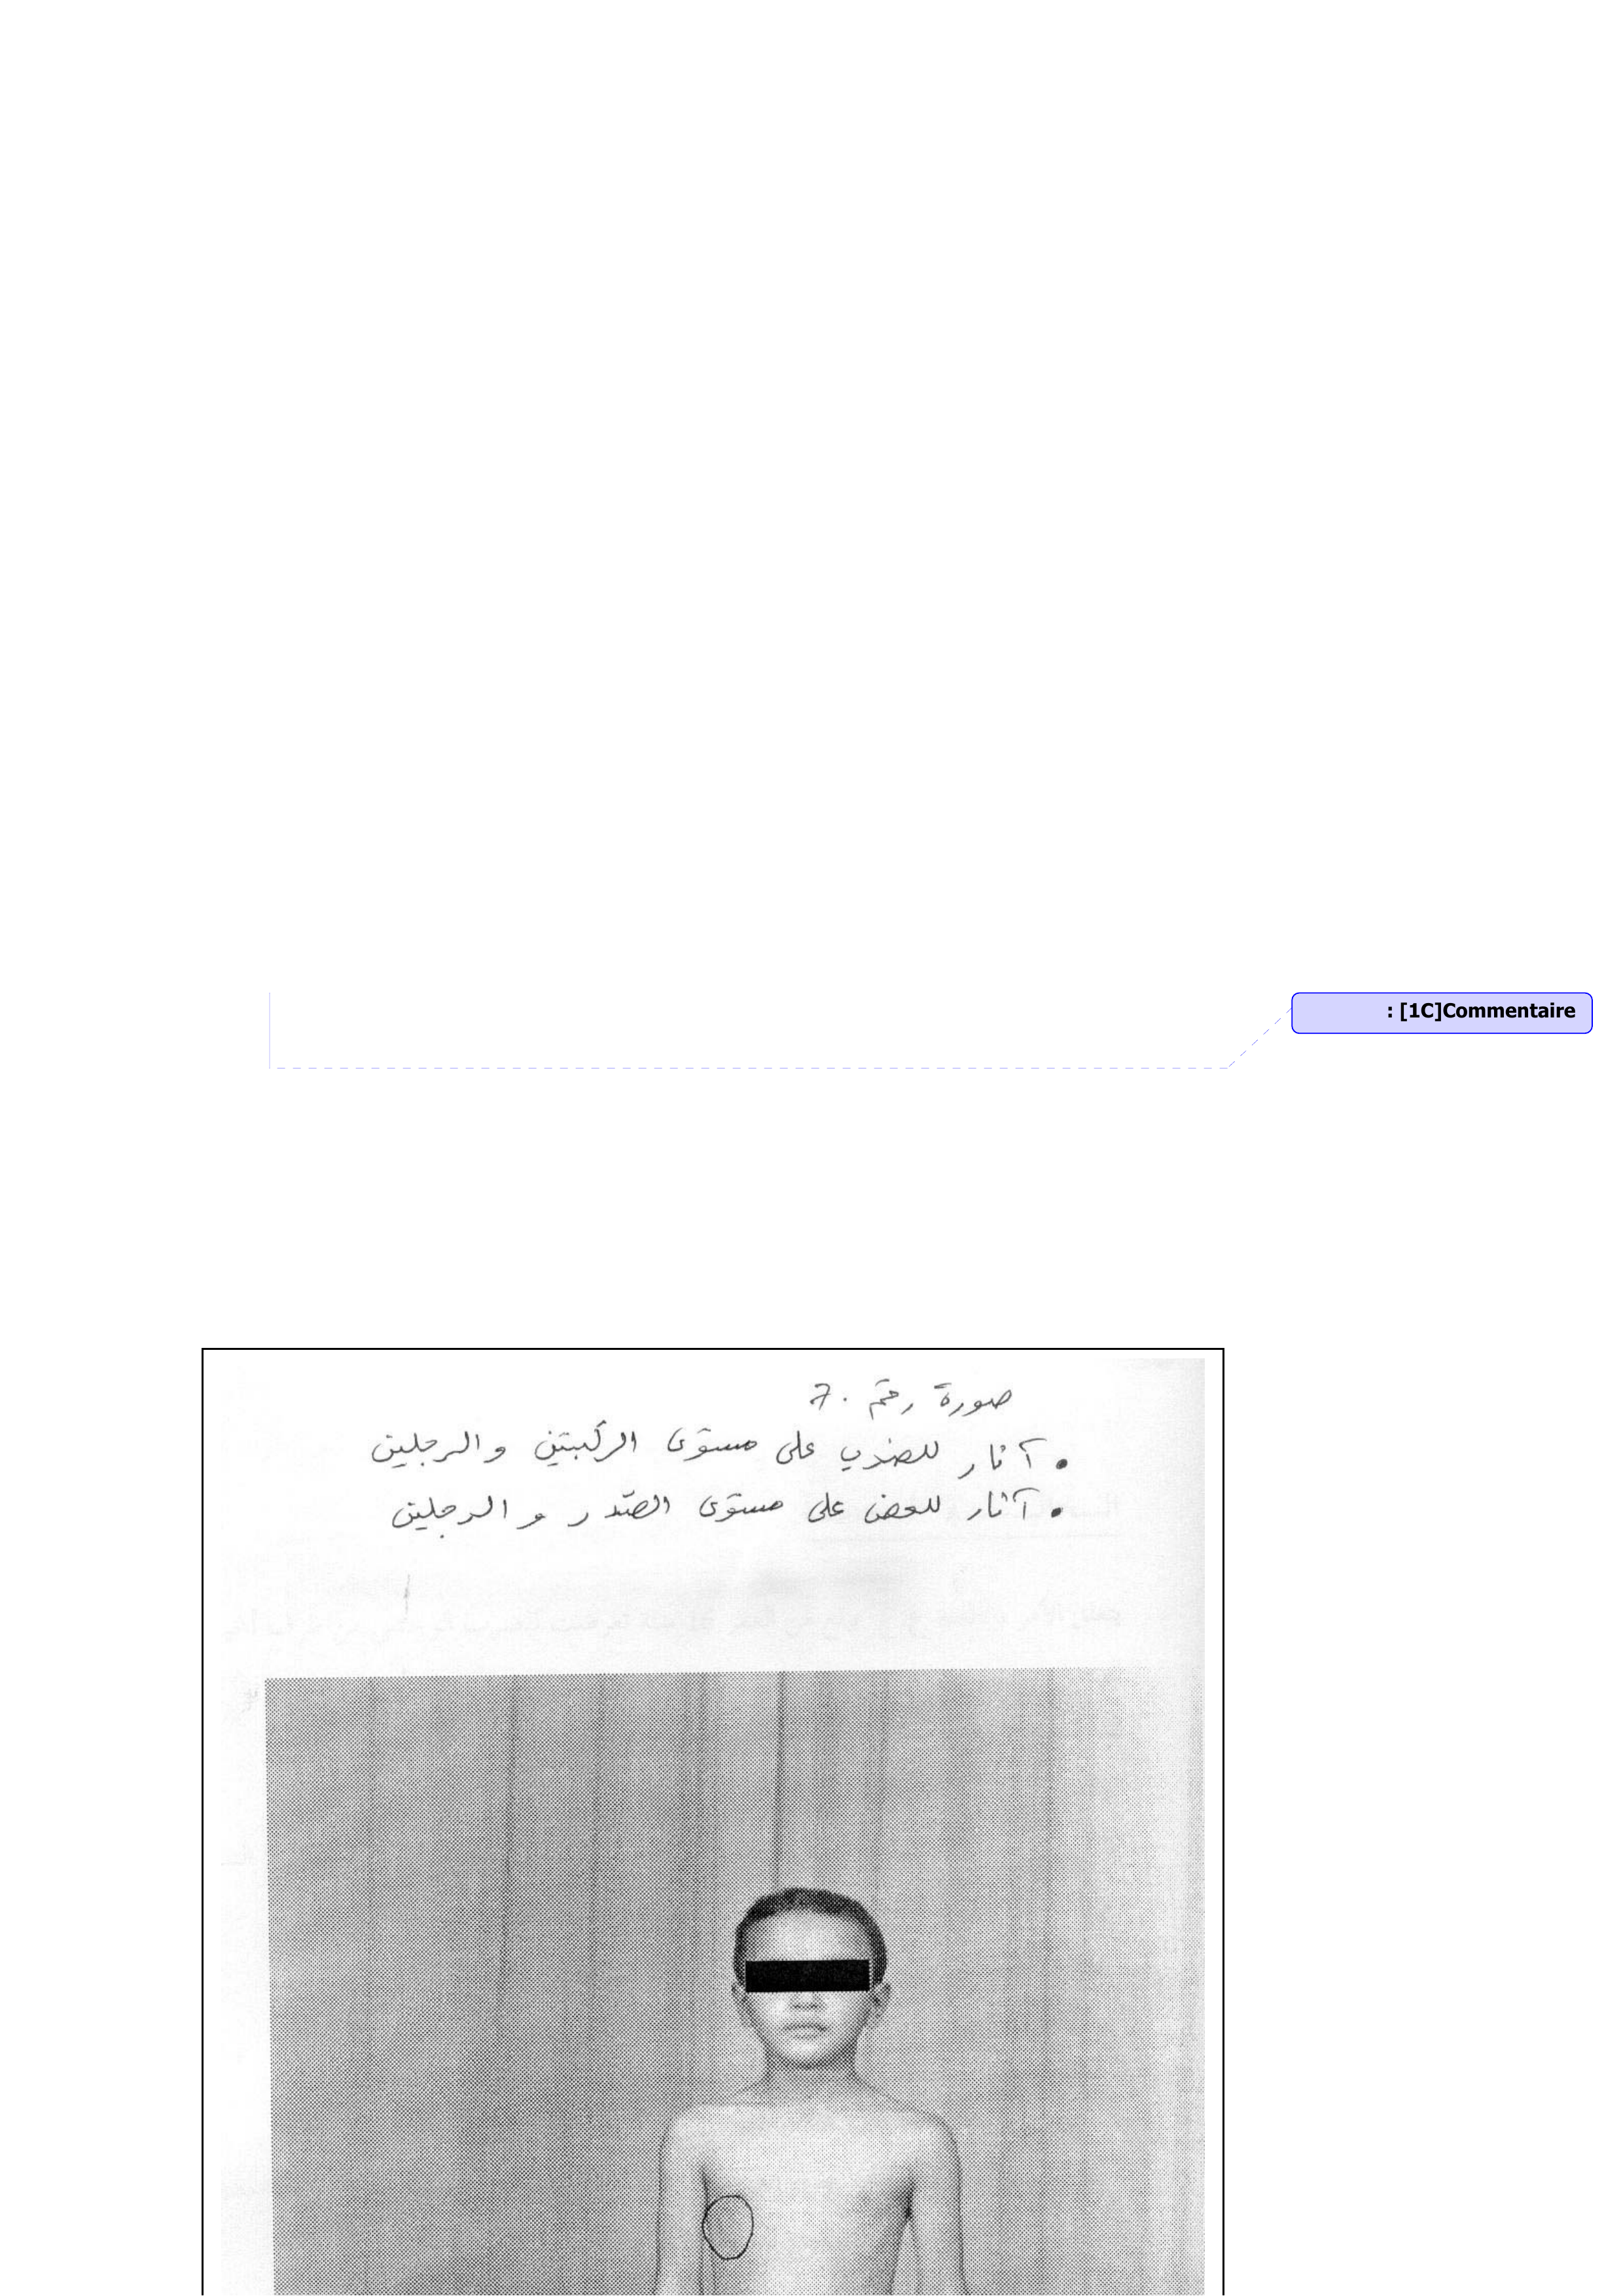 : [1C]Commentaire
صورة رقم 7.
• آثار للضرب على مستوى الركبتين والرجلين
• آثار للعض على مستوى الصدر والرجلين